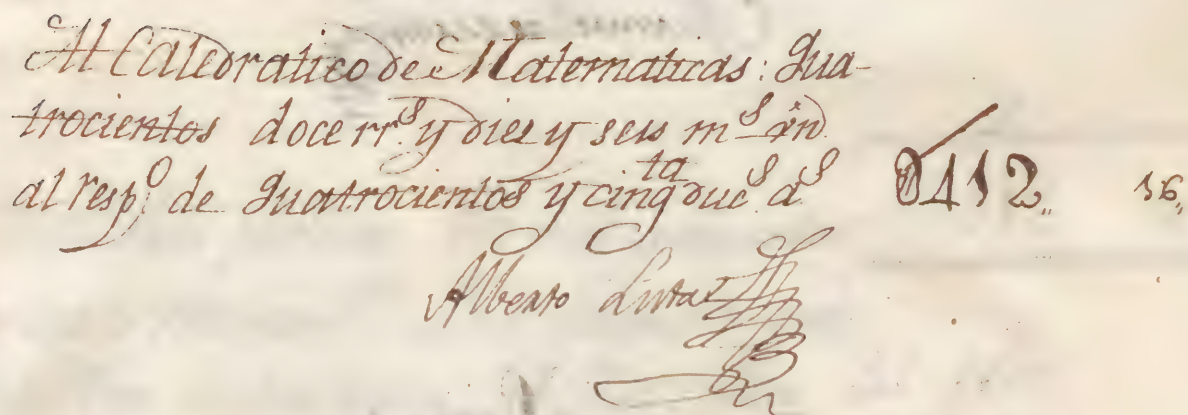 Al Catedratico de Matematicas: Qua-
trocientos doce rrs. y diez y seis ms. vn
al respo. de quatrocientos y cinqta ducs. as 0412,, 16,,
Alberto Lista